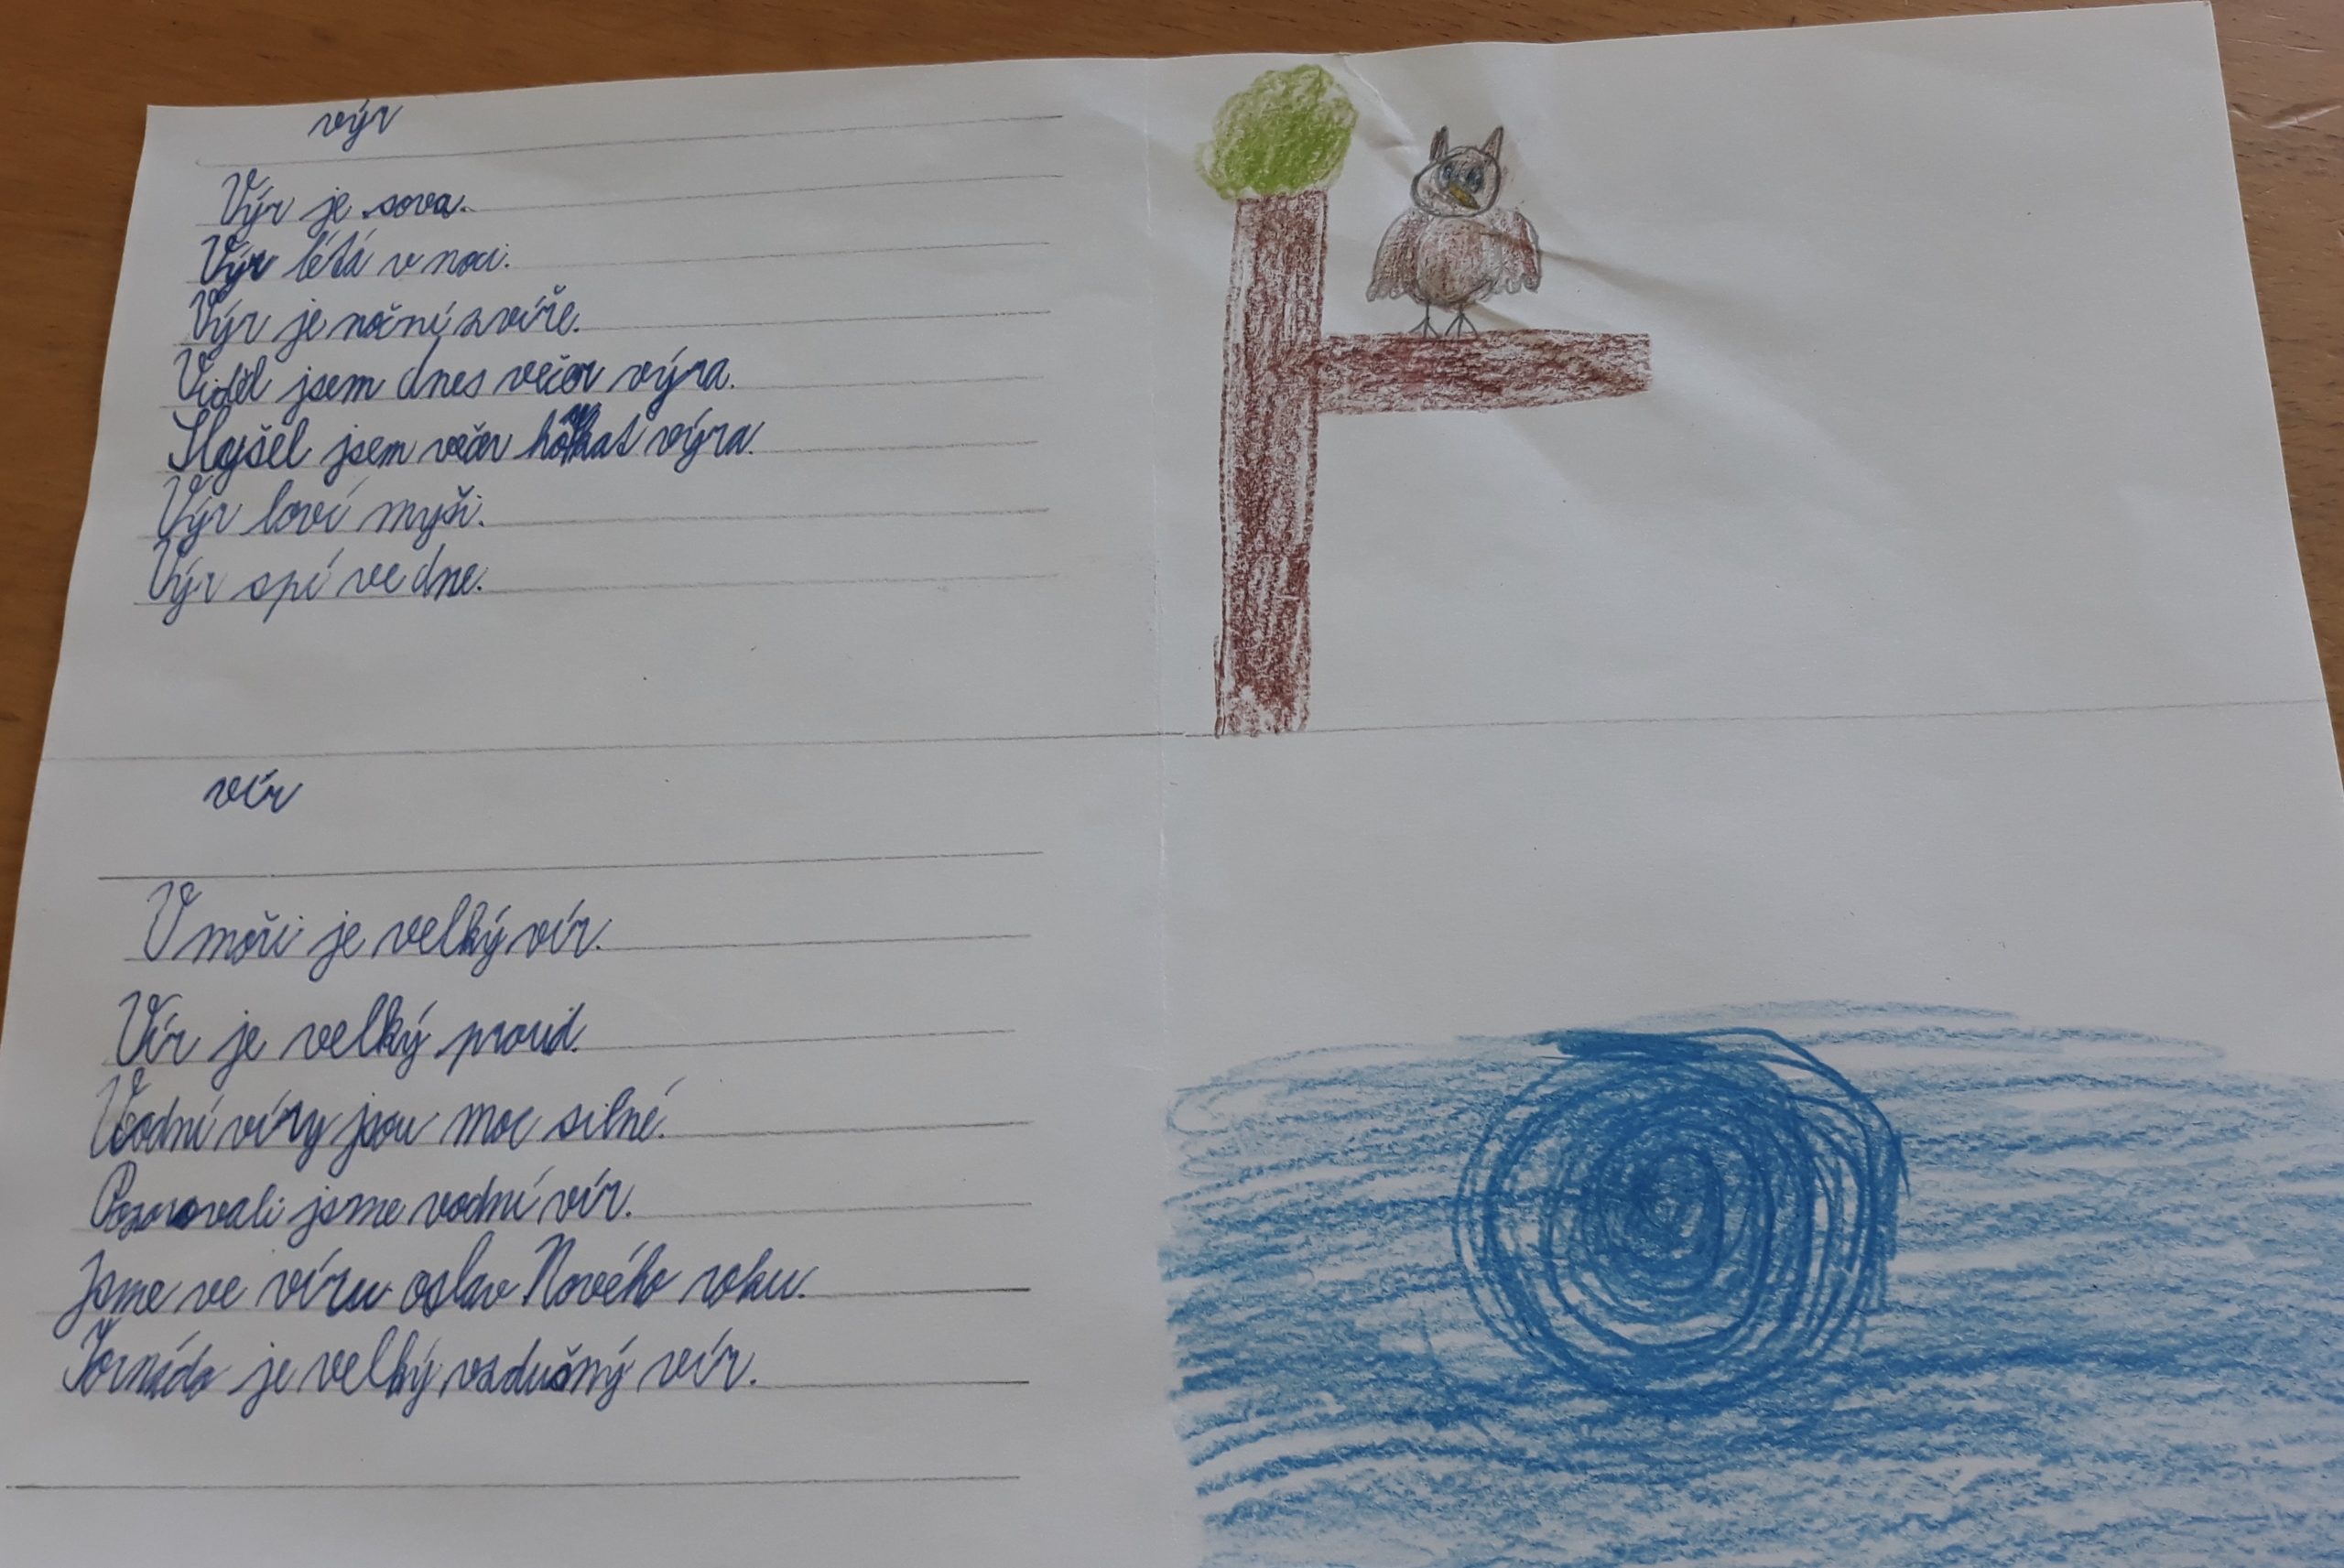 výr
Výr je sova.
Výr létá v noci.
Výr je noční zvíře.
Viděl jsem dnes večer výra.
Slyšel jsem večer houkat výra.
Výr loví myši.
Výr spí ve dne.
vír
V moři je velký vír.
Vír je velký proud.
Vodní víry jsou moc silné.
Pozorovali jsme vodní vír.
Jsme ve víru oslav Nového roku.
Tornádo je velký vzdušný vír.